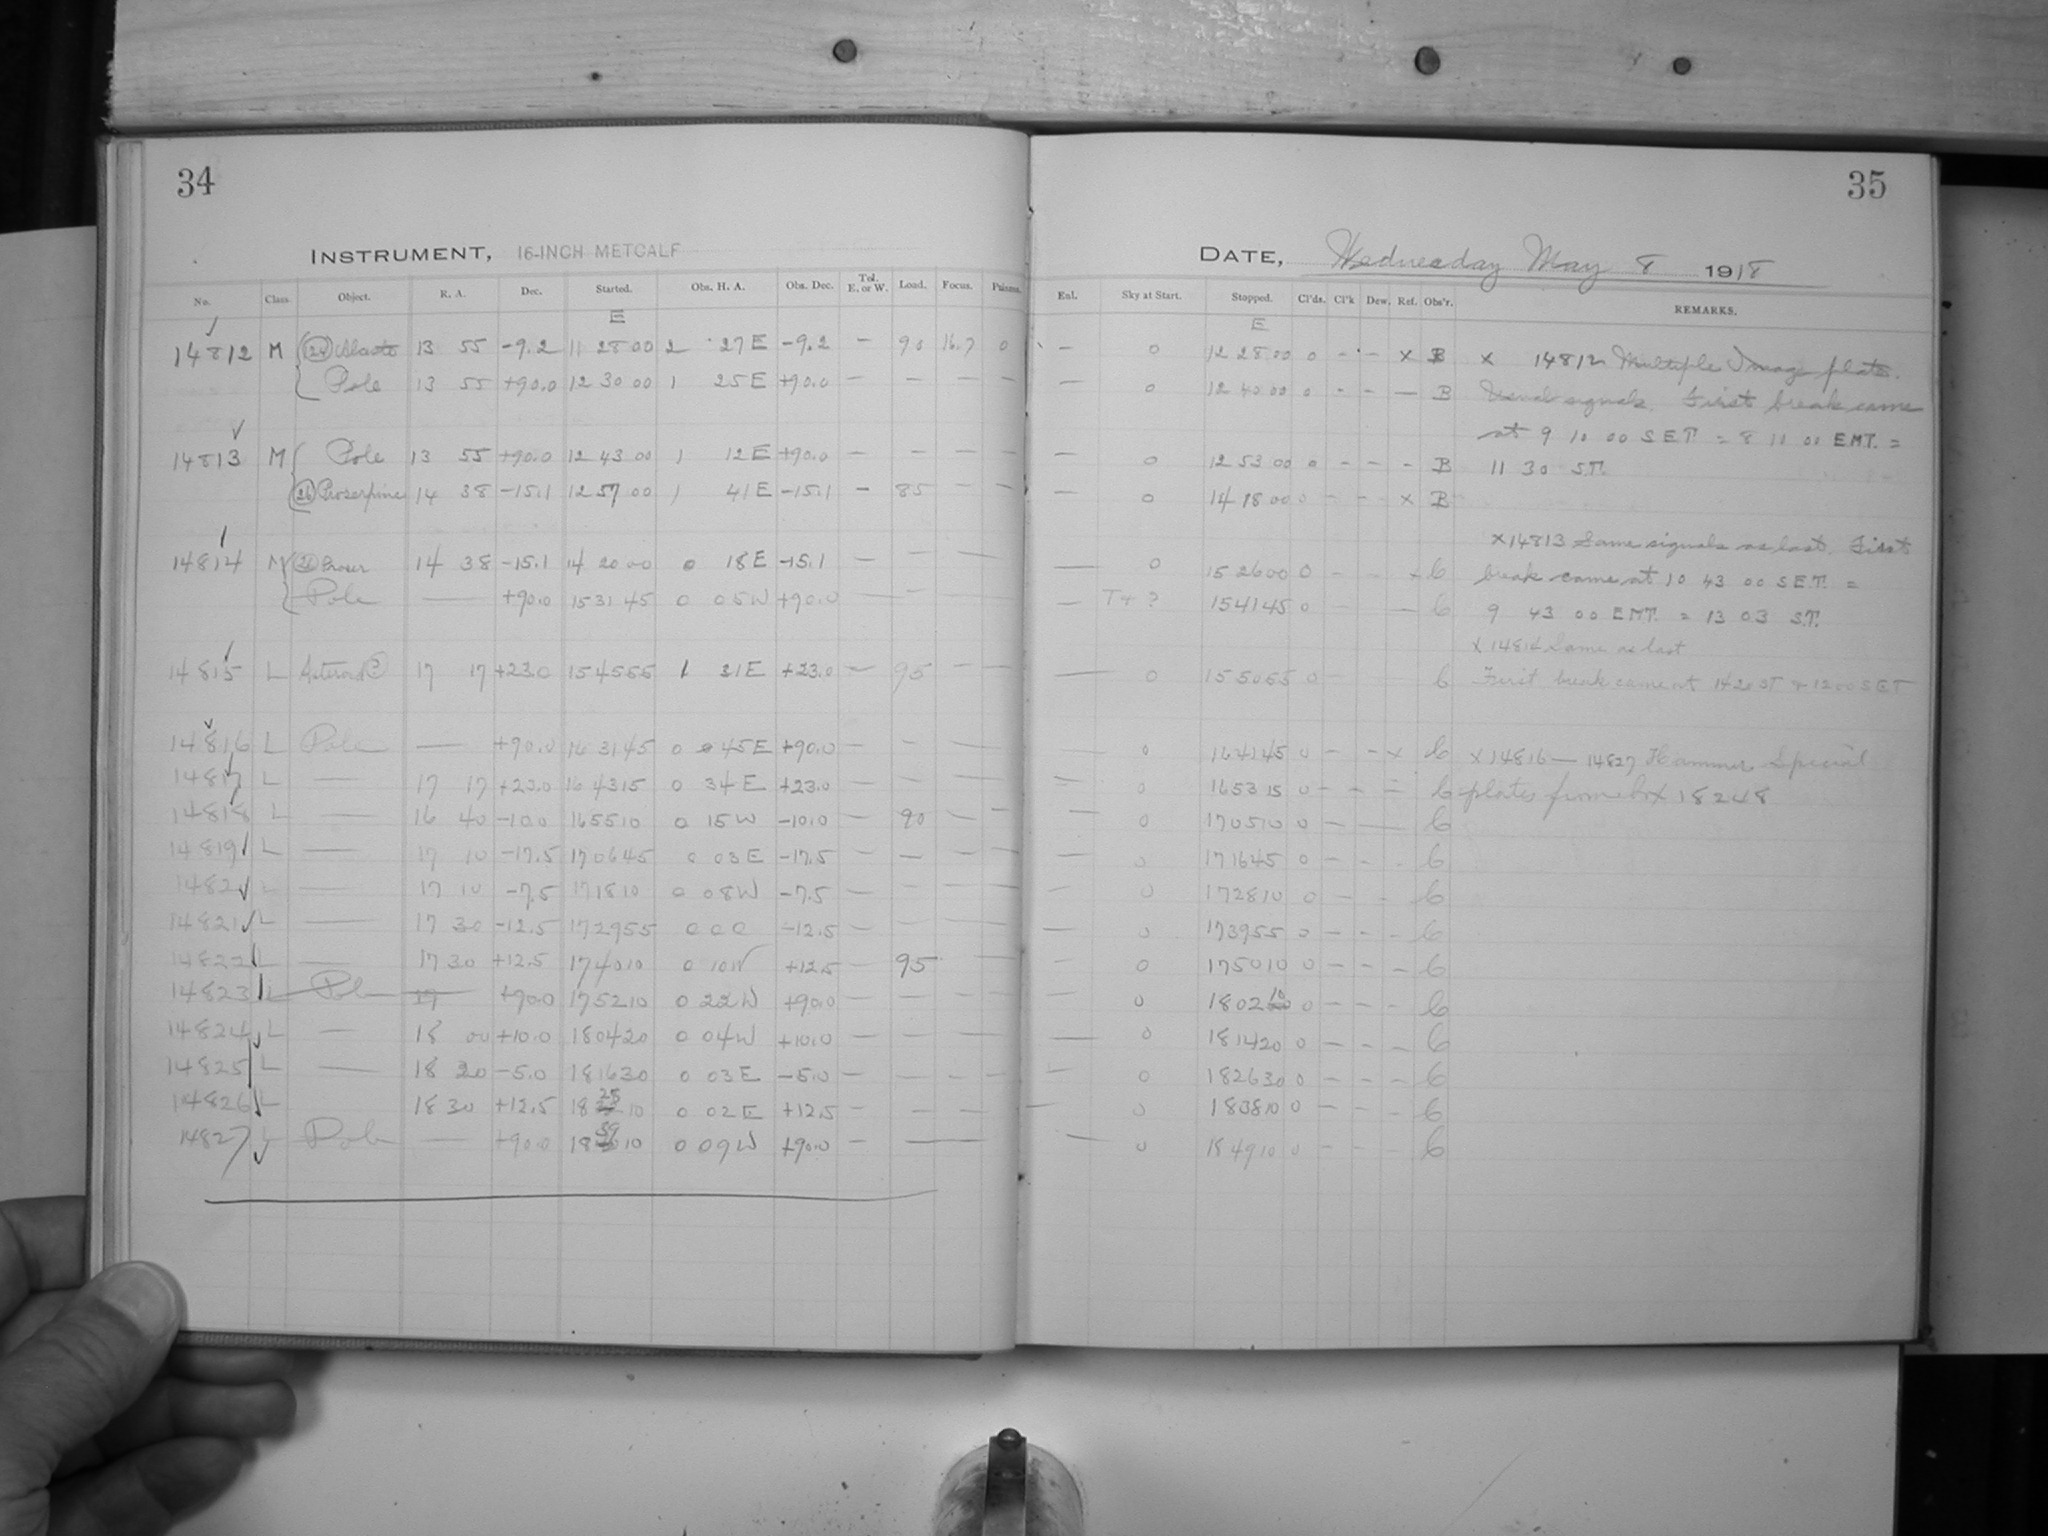 34
INSTRUMENT, 16-INCH METCALF
No. Class. Object. R. A. Dec. Started. Obs. H. A. Obs. Dec. Tel. E. or W. Load. Focus.
E
14812 M (24) 13 55 -9.2 11 28 00 2 27 E -9.2 - 90 16.7 0
Pole 13 55 +90.0 12 30 00 1 25 E +90.0 - - - -
14813 M Pole 13 55 +90.0 12 43 00 1 12 E +90.0 - - - -
(26) Proserpine 14 38 -15.1 12 57 00 1 41 E -15.1 - 85 - -
14814 M (26) Proser 14 38 -15.1 14 20 00 0 18 E -15.1 - - -
Pole — +90.0 15 31 45 0 05 W +90.0 — —
14815 L Asteroid 17 17 +23.0 15 45 55 1 31 E +23.0 - 95 - -
14816 L Pole — +90.0 16 31 45 0 45 E +90.0 - - - -
14817 L — 17 17 +23.0 16 43 15 0 34 E +23.0 - - - -
14818 L — 16 40 -10.0 16 55 10 0 15 W -10.0 - 90 - -
14819 L — 17 10 -17.5 17 06 45 0 03 E -17.5 - - - -
1482 L — 17 10 -7.5 17 18 10 0 08 W -7.5 - - - -
14821 L — 17 30 -12.5 17 29 55 0 0 0 -12.5 - - - -
14822 L — 17 30 +12.5 17 40 10 0 10 W +12.5 - 95 - -
14823 L Pole 17 +90.0 17 52 10 0 22 W +90.0 - - - -
14824 L — 18 00 +10.0 18 04 20 0 04 W +10.0 - - - -
14825 L — 18 20 -5.0 18 16 30 0 03 E -5.0 - - - -
14826 L 18 30 +12.5 18 28 10 0 02 E +12.5 - - - -
14827 L Pole — +90.0 18 39 10 0 09 W +90.0 - — —
35
DATE, Wednesday May 8 1918
Enl. Sky at Start. Stopped. Cl'ds. Cl'k Dew. Ref. Obs'r. REMARKS.
E
- 0 12 28 00 0 - - x B x 14812 Multiple Image plate.
- 0 12 40 00 0 - - - B Usual signals. First break came
at 9 10 00 SET = 8 11 00 EMT. =
- 0 12 53 00 0 - - - B 11 30 ST.
- 0 14 18 00 0 - - x B
x14813 Same signals as last. First
— 0 15 26 00 0 - - - G break came at 10 43 00 SET. =
- T+ ? 15 41 45 0 - - G 9 43 00 EMT. = 13 03 ST.
x 14814 Same as last
— 0 15 50 55 0 - G First break came at 1420 ST + 1200 SET
— 0 16 41 45 0 - - x G x 14816 — 14827 Hammer Special
- 0 16 53 15 0 - - = G plates from box 18248
- 0 17 05 10 0 - — G
- 0 17 16 45 0 - - - G
- 0 17 28 10 0 - - G
- 0 17 39 55 0 - - - G
0 17 50 10 0 - - - G
0 18 02 10 0 - - - G
— 0 18 14 20 0 - - - G
- 0 18 26 30 0 - - - G
- 0 18 38 10 0 - - - G
- 0 18 49 10 0 - - - G